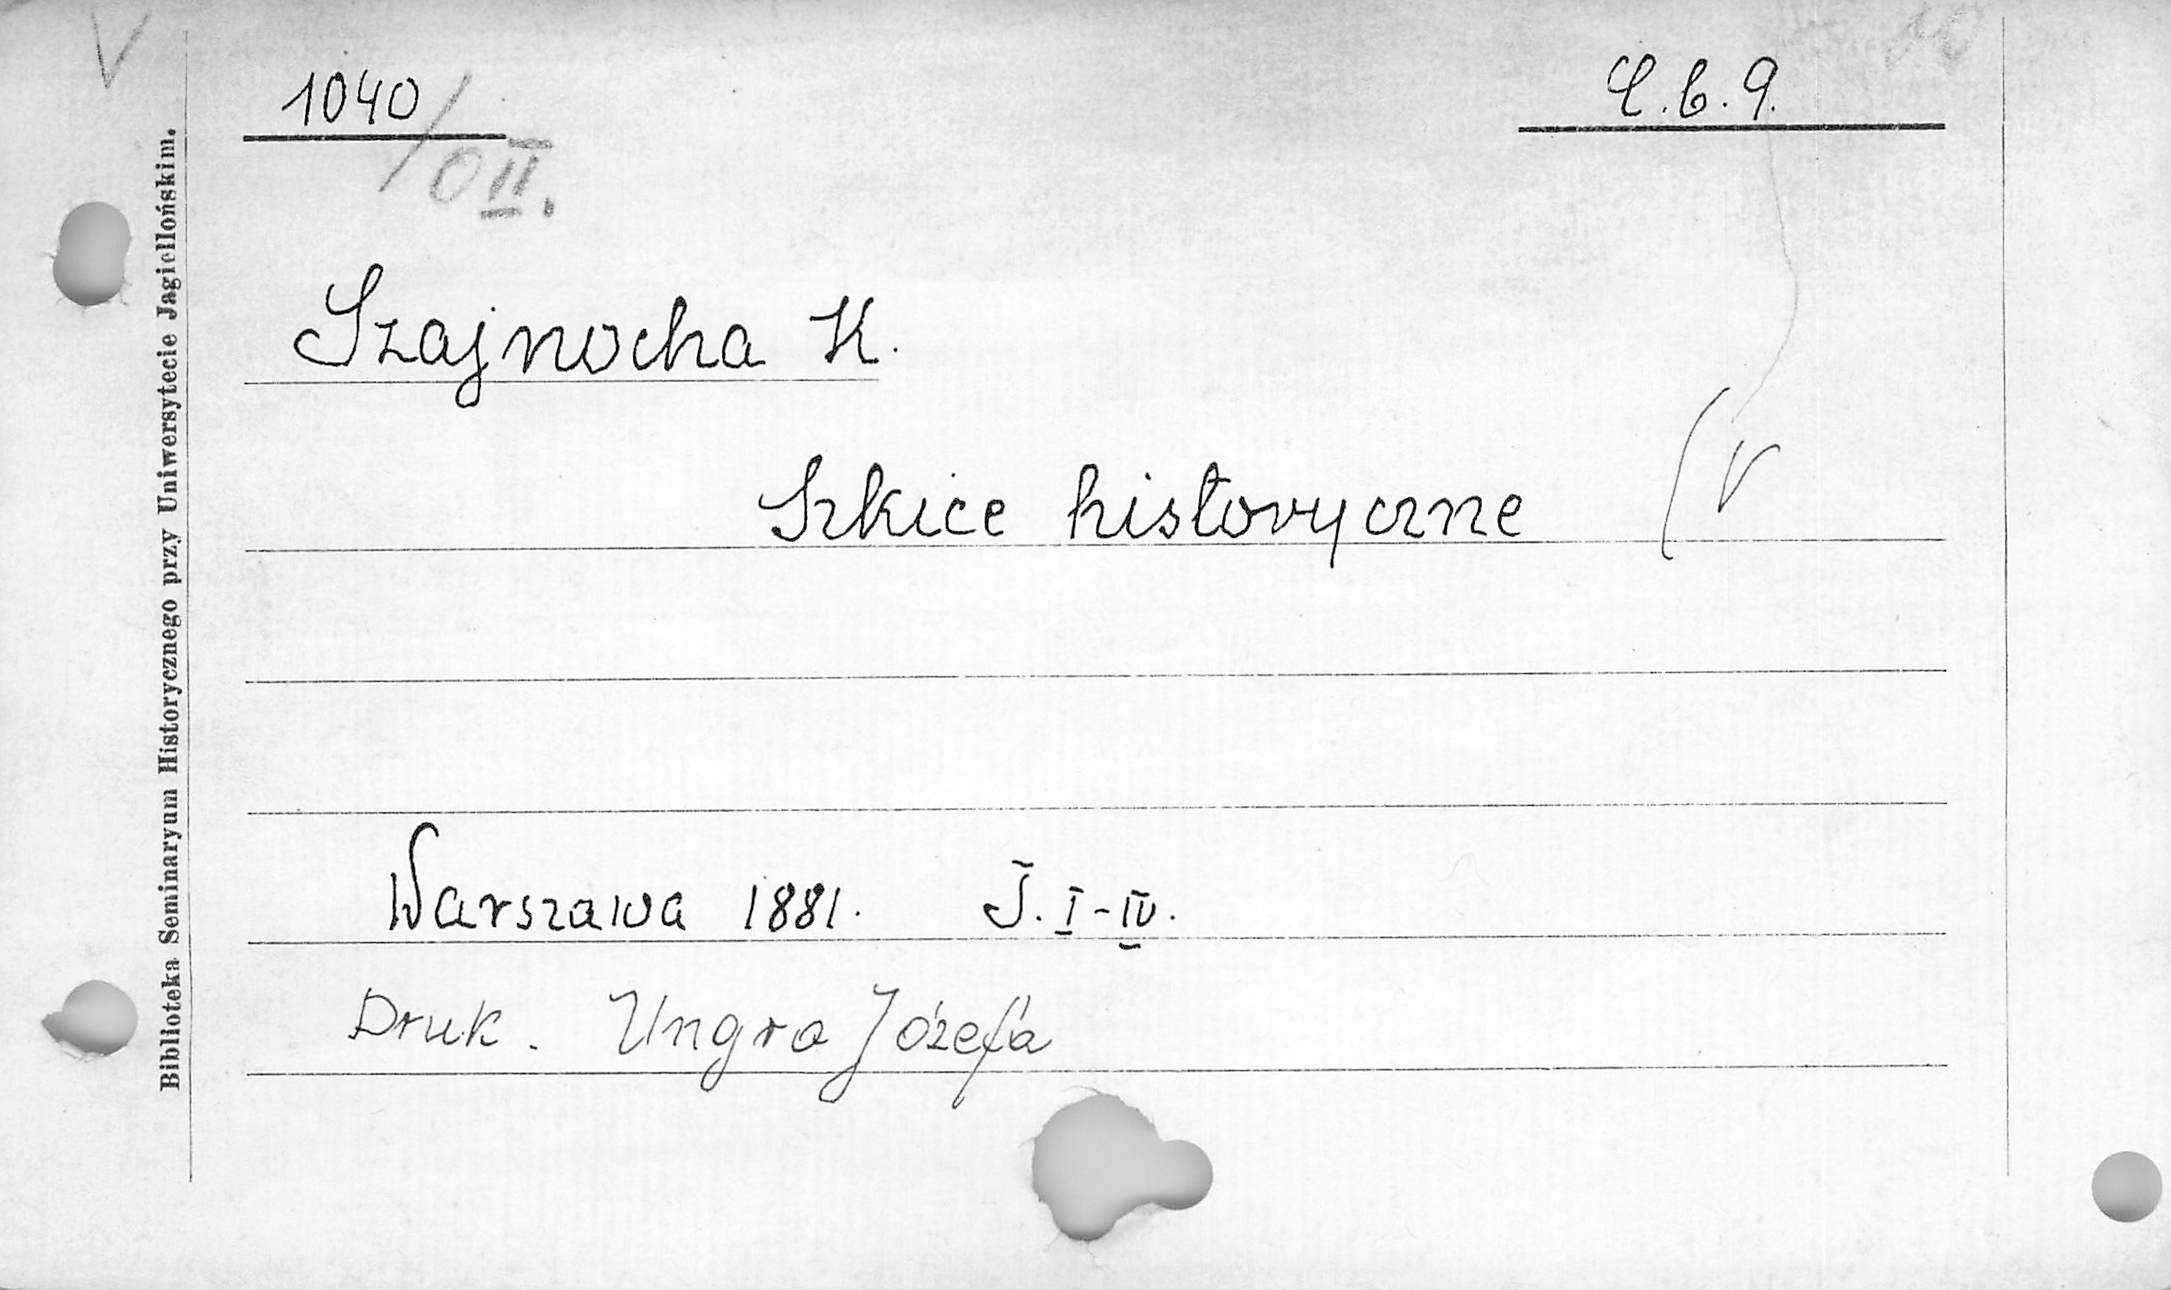 V
1040/OII.
C.b.9.
Szajnocha K.
Szkice historyczne
(V
Warszawa 1881. T. I-IV.
Druk. Ungra Józefa
Biblioteka Seminaryum Historycznego przy Uniwersytecie Jagiellońskim.